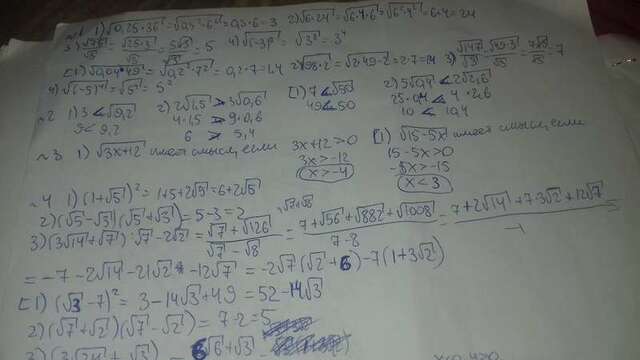 ~1 1) √0,25·36 = √0,5²·6² = 0,5·6 = 3 2) √6·24 = √6·4·6 = √6²·4 = 6·4 = 24
3) = √25·3/√3 = 5√3/√3 = 5 4) = √3⁸ = 3⁴
[1) √0,04·49 = √0,2²·7² = 0,2·7 = 1,4 2) √98·2 = √2·49·2 = 2·7 = 14 3) √147/√3 = √49·3/√3 = 7√3/√3 = 7
4) √(-5)⁴ = √5⁴ = 5²
~2 1) 3 < √9,2 2) 2√1,5 > 3√0,6 [1) 7 < √50 2) 5√0,4 < 2√2,6
9 < 9,2 4·1,5 > 9·0,6 49 < 50 25·0,4 < 4·2,6
6 > 5,4 10 < 10,4
~3 1) √3x+12 имеет смысл, если 3x+12 > 0 [1) √15-5x имеет смысл, если
3x > -12 15-5x > 0
x > -4 -5x > -15
x < 3
~4 1) (1+√5)² = 1+5+2√5 = 6+2√5
2) (√5-√3)(√5+√3) = 5-3 = 2
3) (3√14+√7)·√7-2√2 = √7+√126/√7-√8 = 7+√56+√882+√1008/7-8 = 7+2√14+7·3√2+12√7/-1 =
= -7-2√14-21√2-12√7 = -2√7(√2+6)-7(1+3√2)
[1) (√3-7)² = 3-14√3+49 = 52-14√3
2) (√7+√2)(√7-√2) = 7-2 = 5